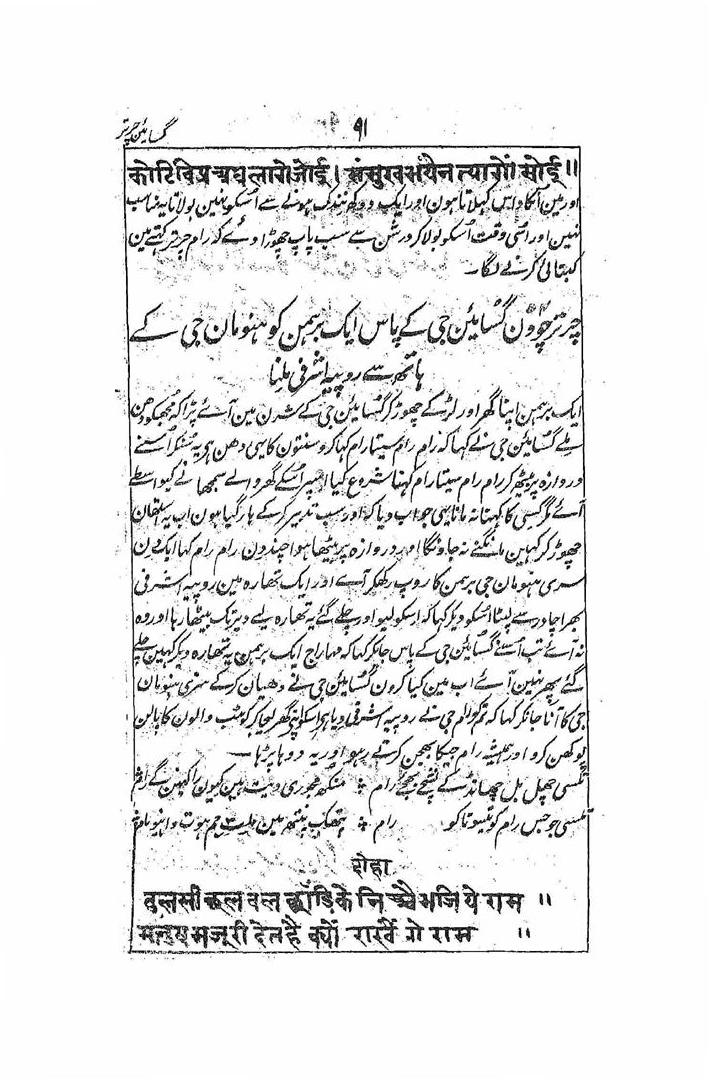 گسائین چرتر
९१
कोटि विप्र अघ लागे जोई। संमुख भयेन त्यागों सोई॥
اور مین انکا داس کہلاتا ہون اور ایک دوکھ نندک ہونے سے اسکو نہین بولاتا یہ مناسب
نہین اور اسی وقت اسکو بولا کر ورشن سے سب پاپ چھوڑا دئے کہ رام چرتر کہتے ہین
کہتا لی کرنے لگا۔
چرتر چوون گسائین جی کے پاس ایک برہمن کو ہنومان جی کے
ہاتھ سے روپیہ اشرفی ملنا
ایک برہمن اپنا گھر اور لڑکے چھوڑ کر گسائین جی کے شرن مین آئے پڑا کہ مجھکو دھن
ملے گسائین جی نے کہا کہ رام رام سیتا رام کہا کرو سنتون کا یہی دھن ہی یہ سنکر اسنے
دروازہ پر بیٹھ کر رام رام سیتا رام کہنا شروع کیا اسپر اسکے گھر والے سمجھانے کیواسطے
آئے مگر کسی کا کہنا نہ مانا یہی جواب دیا کہ اور سب تدبیر کرکے ہار گیا ہون اب یہ استھان
چھوڑ کر کہین مانگنے نہ جاونگا اور دروازہ پر بیٹھا ہوا چند دن رام رام کہا ایک دن
سری ہنومان جی برہمن کا روپ رکھکر آئے اور ایک تھارہ مین روپیہ اشرفی
بھرا چادر سے لپٹا اسکو دیکر کہا کہ اسکو لیو اور چلے گئے یہ تھارہ لیے دیر تک بیٹھا رہا اور وہ
نہ آئے تب اسنے گسائین جی کے پاس جا کر کہا کہ مہاراج ایک برہمن یہ تھارہ دیکر کہین چلے
گئے پھر نہین آئے اب مین کیا کرون گسائین جی نے دھیان کرکے سری ہنومان
جی کا آنا جانکر کہا کہ تمکو رام جی نے روپیہ اشرفی دیا ہی اسکو اپنے گھر لیجا کر کٹنب والون کا پالن
پوکھن کرو اور ہمیشہ رام جیکا بھجن کرتے رہو اور یہ دوہا پڑہا۔
تلسی چھل بل چھانڈ کے نشچے بھجئے رام ٭ منکھ مجوری دیت ہین کیون راکھین گے رام
تلسی جو جس رام کو تیسو تاکو رام ٭ پنتھ مین
दोहा
तुलसी छल वल छाँडिके निश्चै भजिये राम ॥
मनुष मजूरी देत है क्यों राखें गे राम ॥